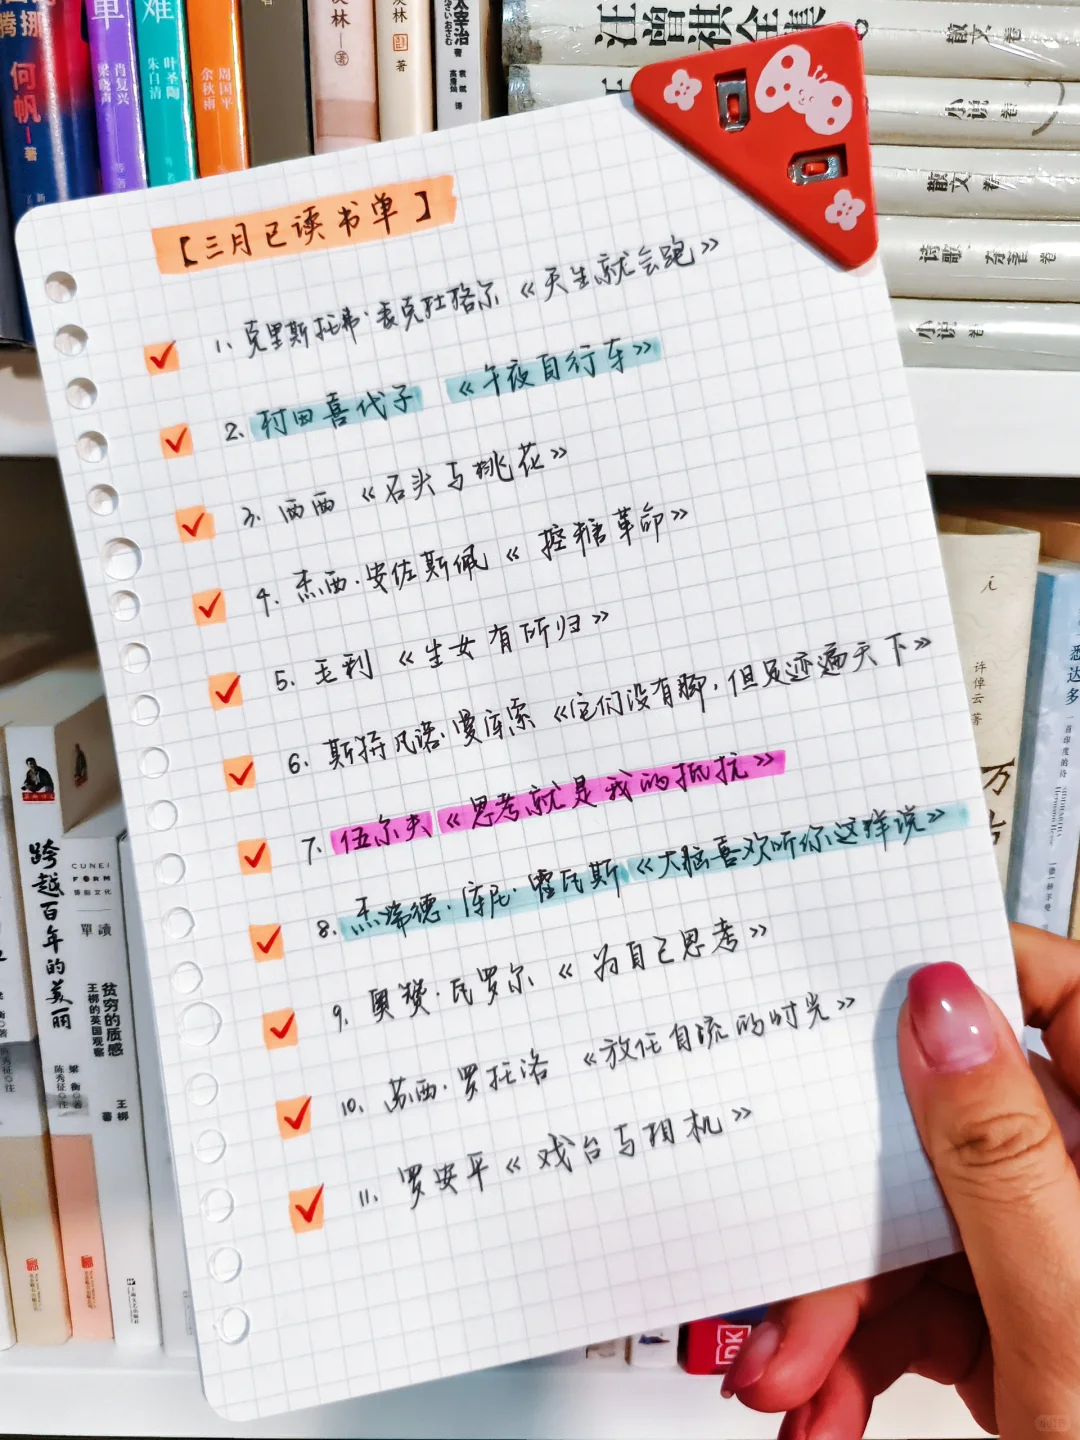 挪
腾
何
帆
著
单
肖复兴
梁晓声
难
叶圣陶
朱自清
周国平
余秋雨
林
著
林
著
太宰治
高詹灿
袁斌
译
汪曾祺全集
散文卷
小说卷
散文卷
诗歌
卷
小说卷
【三月已读书单】
1、克里斯托弗·麦克杜格尔《天生就会跑》
2、村田喜代子 《午夜自行车》
3、西西《石头与桃花》
4、杰西·安佐斯佩《控糖革命》
5、毛利《生女有所归》
6、斯特凡诺·曼库索《它们没有脚，但足迹遍天下》
7、伍尔夫《思考就是我的抵抗》
8、杰瑞德·库尼·霍瓦斯《大脑喜欢听你这样说》
9、奥赞·瓦罗尔《为自己思考》
10、苏西·罗托洛 《放任自流的时光》
11、罗安平《戏台与相机》
许倬云 著
万
悉达多
一首印度的诗
SIDDHARTHA
Hermann Hesse
跨越百年的美丽
梁衡 著
陈秀征 注
CUNEI
FORM
铸刻文化
單讀
贫穷的质感
王梆的英国观察
王梆
著
上海文艺出版社
DK